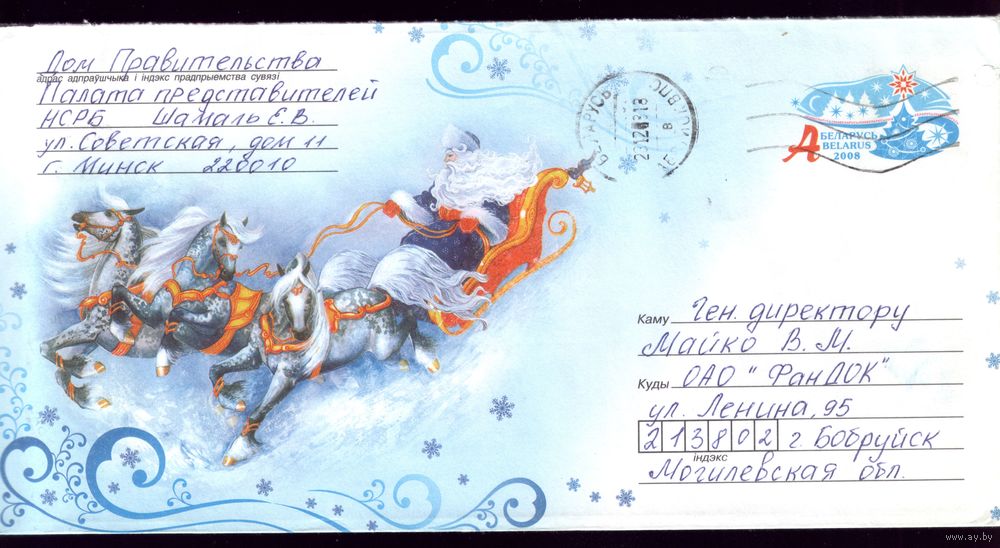 Дом Правительства
адрас адпраўшчыка і індэкс прадпрыемства сувязі
Палата представителей
НСРБ Шамаль Е.В.
ул. Советская, дом 11
г. Минск 220010
БЕЛАРУСЬ
А БЕЛАРУСЬ
BELARUS
2008
Каму Ген. директору
Майко В. М.
Куды ОАО "ФанДОК"
ул. Ленина, 95
213802 г. Бобруйск
індэкс
Могилевская обл.
www.ay.by